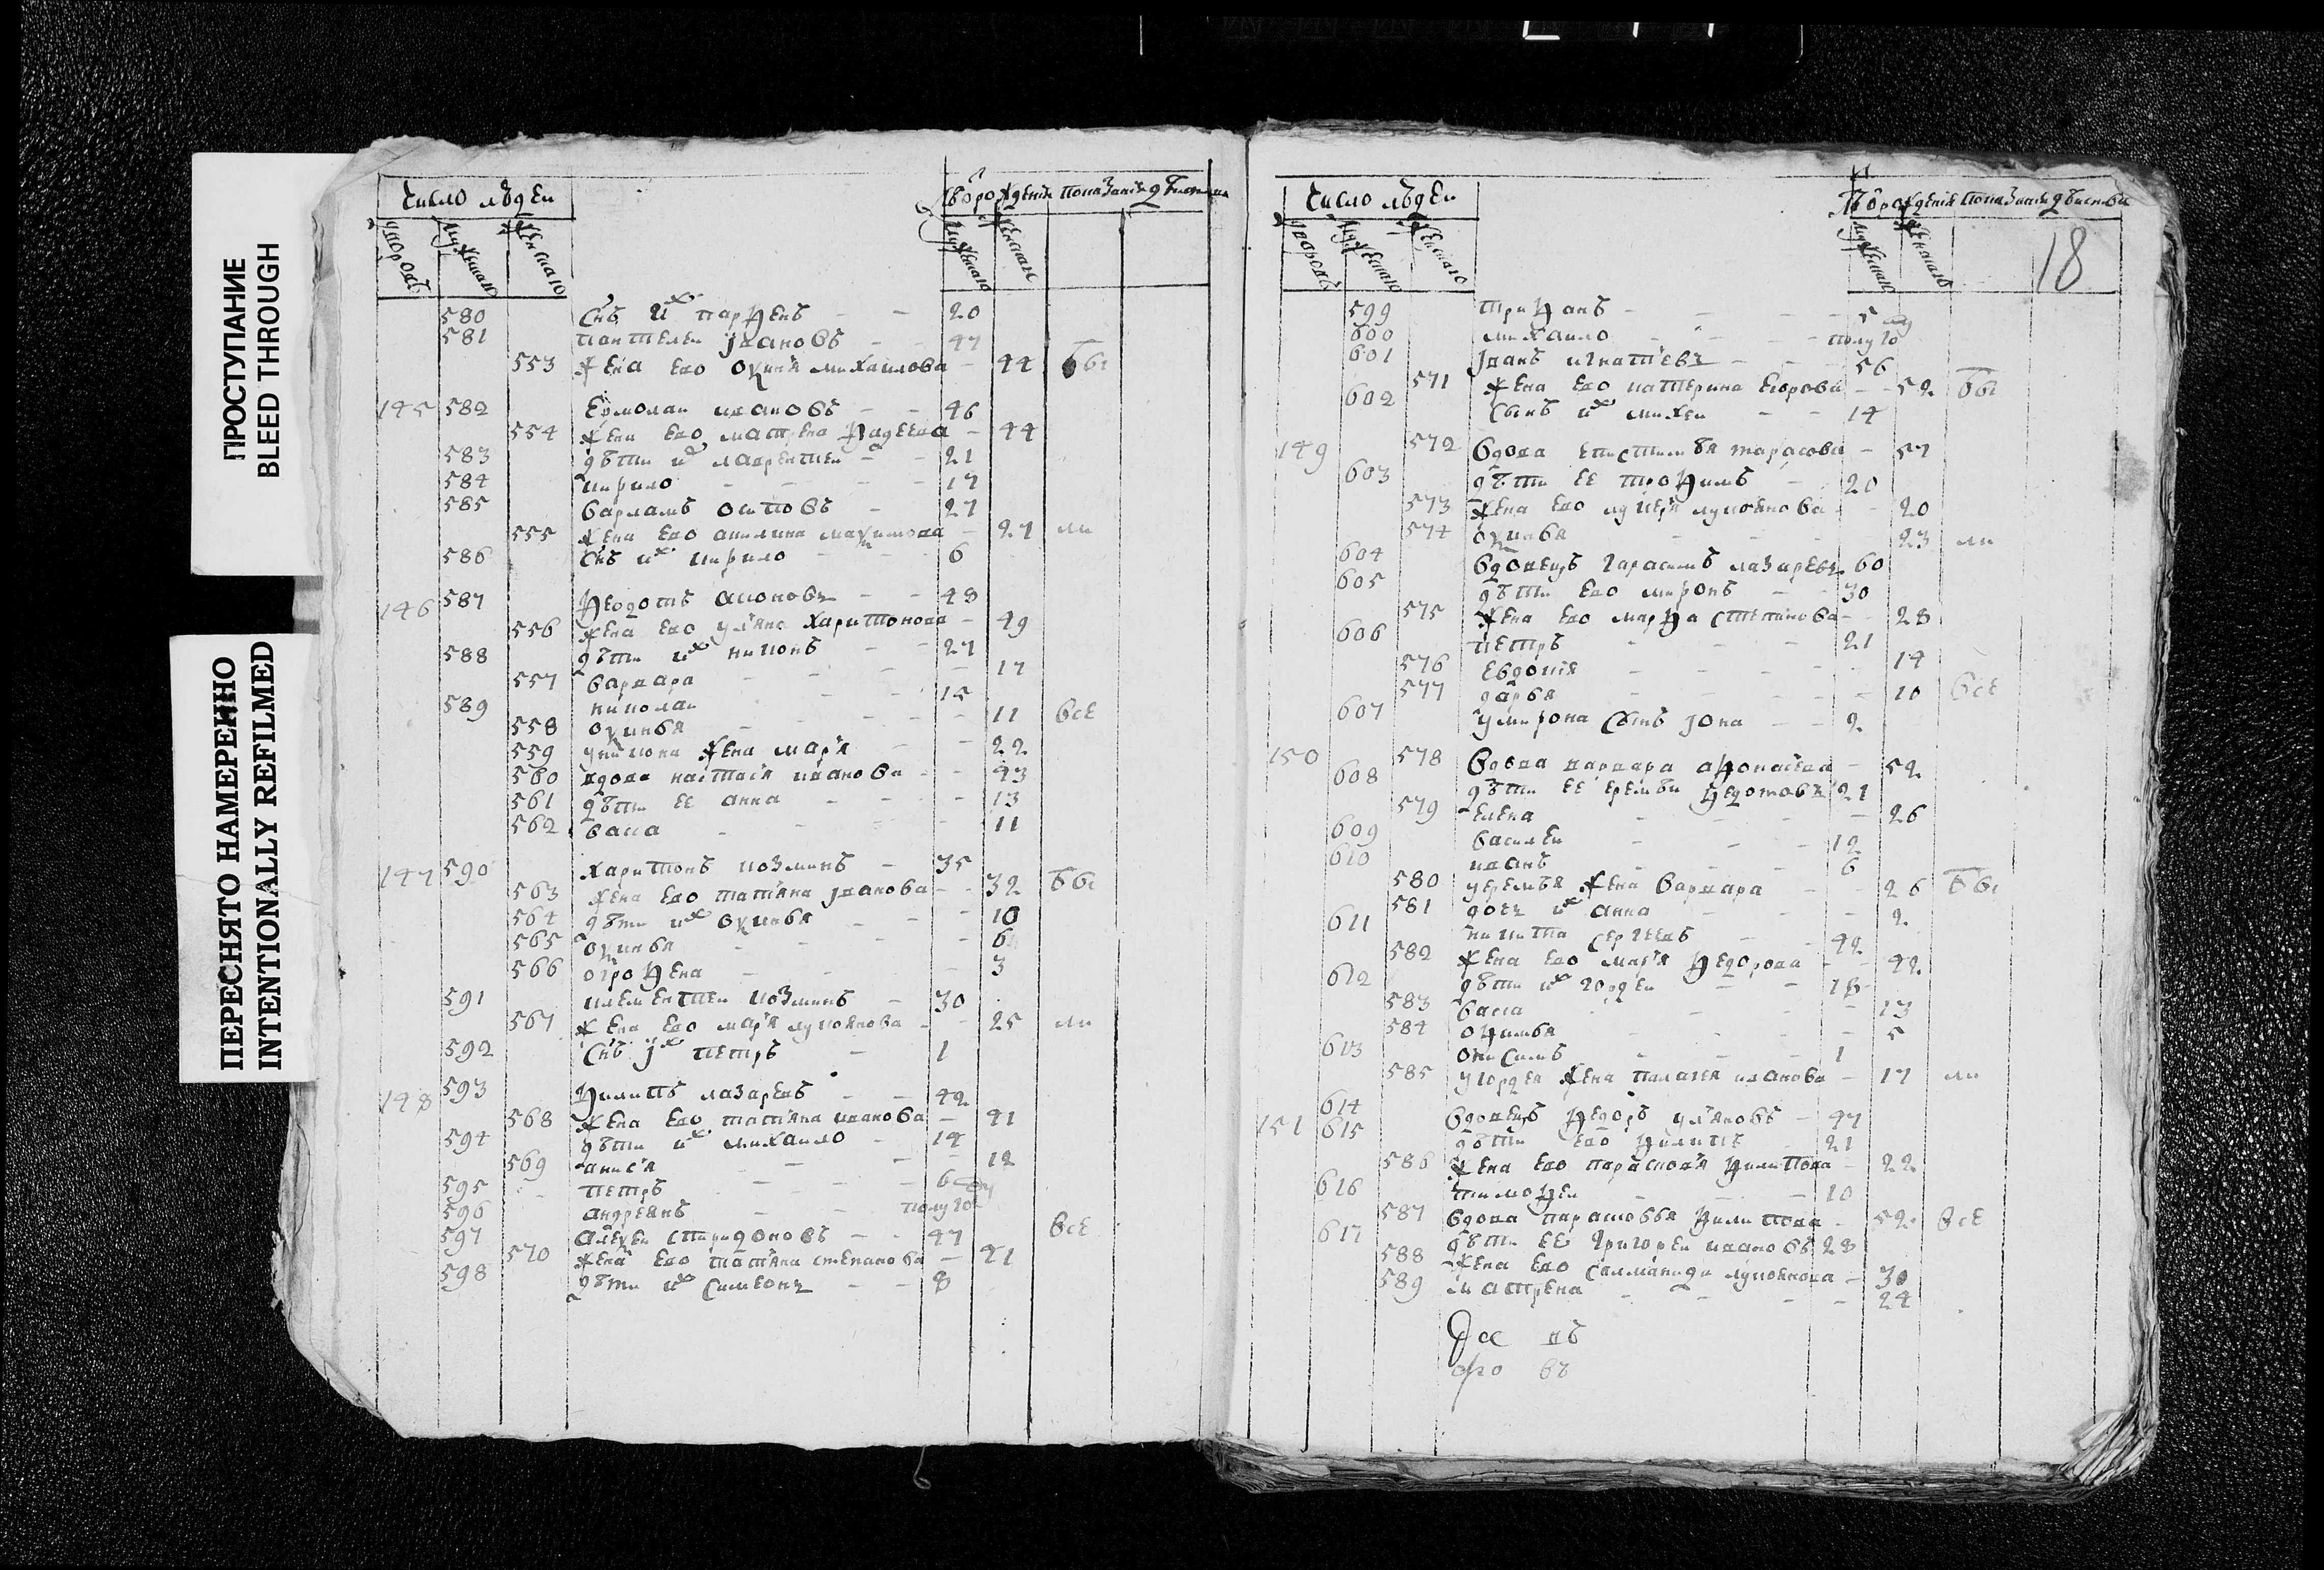 ПРОСТУПАНИЕ
BLEED THROUGH
ПЕРЕСНЯТО НАМЕРЕННО
INTENTIONALLY REFILMED
число людеи
580 Снъ их парфенъ 20
581 пантелеи ивановъ 47
553 жена ево оксинья михаилова 44
145 582 Ермолаи ивановъ 46
554 жена ево матрена фадеева 44
583 дѣти их лаврентеи 21
584 кирило 17
585 варламъ осиповъ 27
555 жена ево акилина максимова 27
586 снъ их кирило 6
146 587 федотъ 48
556 жена ево ульяна харитонова 49
588 дѣти их никонъ 27
557 варвара 17
589 николаи 15
558 оксинья 11 все
559 у никона жена марья 22
560 вдова настасья иванова 43
561 дѣти ее анна 13
562 васса 11
147 590 харитонъ козминъ 35
563 жена ево татьяна иванова 32
564 дѣти их оксинья 10
565 оксинья 6
566 огрофена 3
591 климентеи козминъ 30
567 жена ево марья лукоянова 25
592 Снъ их петръ 1
148 593 филипъ лазаревъ 42
568 жена ево татьяна иванова 41
594 дѣти их михаило 14
569 анисья 12
595 петръ 6
596 андреянъ полу го
597 алексеи спиридоновъ 47 все
570 жена ево татьяна степанова 41
598 дѣти их симеонъ 8
число людеи
18
599 трифанъ 5
600 михаило полу го
601 иванъ игнатьевъ 56
571 жена ево катерина егорова 52
602 сынъ их михеи 14
149 572 вдова епистимья тарасова 57
603 дѣти ее трофимъ 20
573 жена ево лукерья лукоянова 20
574 оксинья 23
604 вдовецъ гарасимъ лазаревъ 60
605 дѣти ево миронъ 30
575 жена ево марфа степанова 28
606 петръ 21
576 евдокия 14
577 дарья 10 все
607 у мирона сынъ иона 2
150 578 вдова варвара афонасьева 52
608 дѣти ее еремѣи федотовъ 21
579 елена 26
609 василеи 12
610 иванъ 6
580 у еремѣя жена варвара 26
581 дочь их анна 2
611 никита сергеевъ 42
582 жена ево марья федорова 42
612 дѣти их гордеи 18
583 васса 13
584 офимья 5
613 онисимъ 1
585 у гордея жена палагея иванова 17
614 вдовецъ федоръ ульяновъ 47
151 615 дѣти ево филипъ 21
586 жена ево парасковья филипова 22
616 тимофеи 10
587 вдова парасковья филипова 52 все
617 дѣти ее григореи ивановъ 28
588 жена ево саломанида лукоянова 30
589 матрена 24